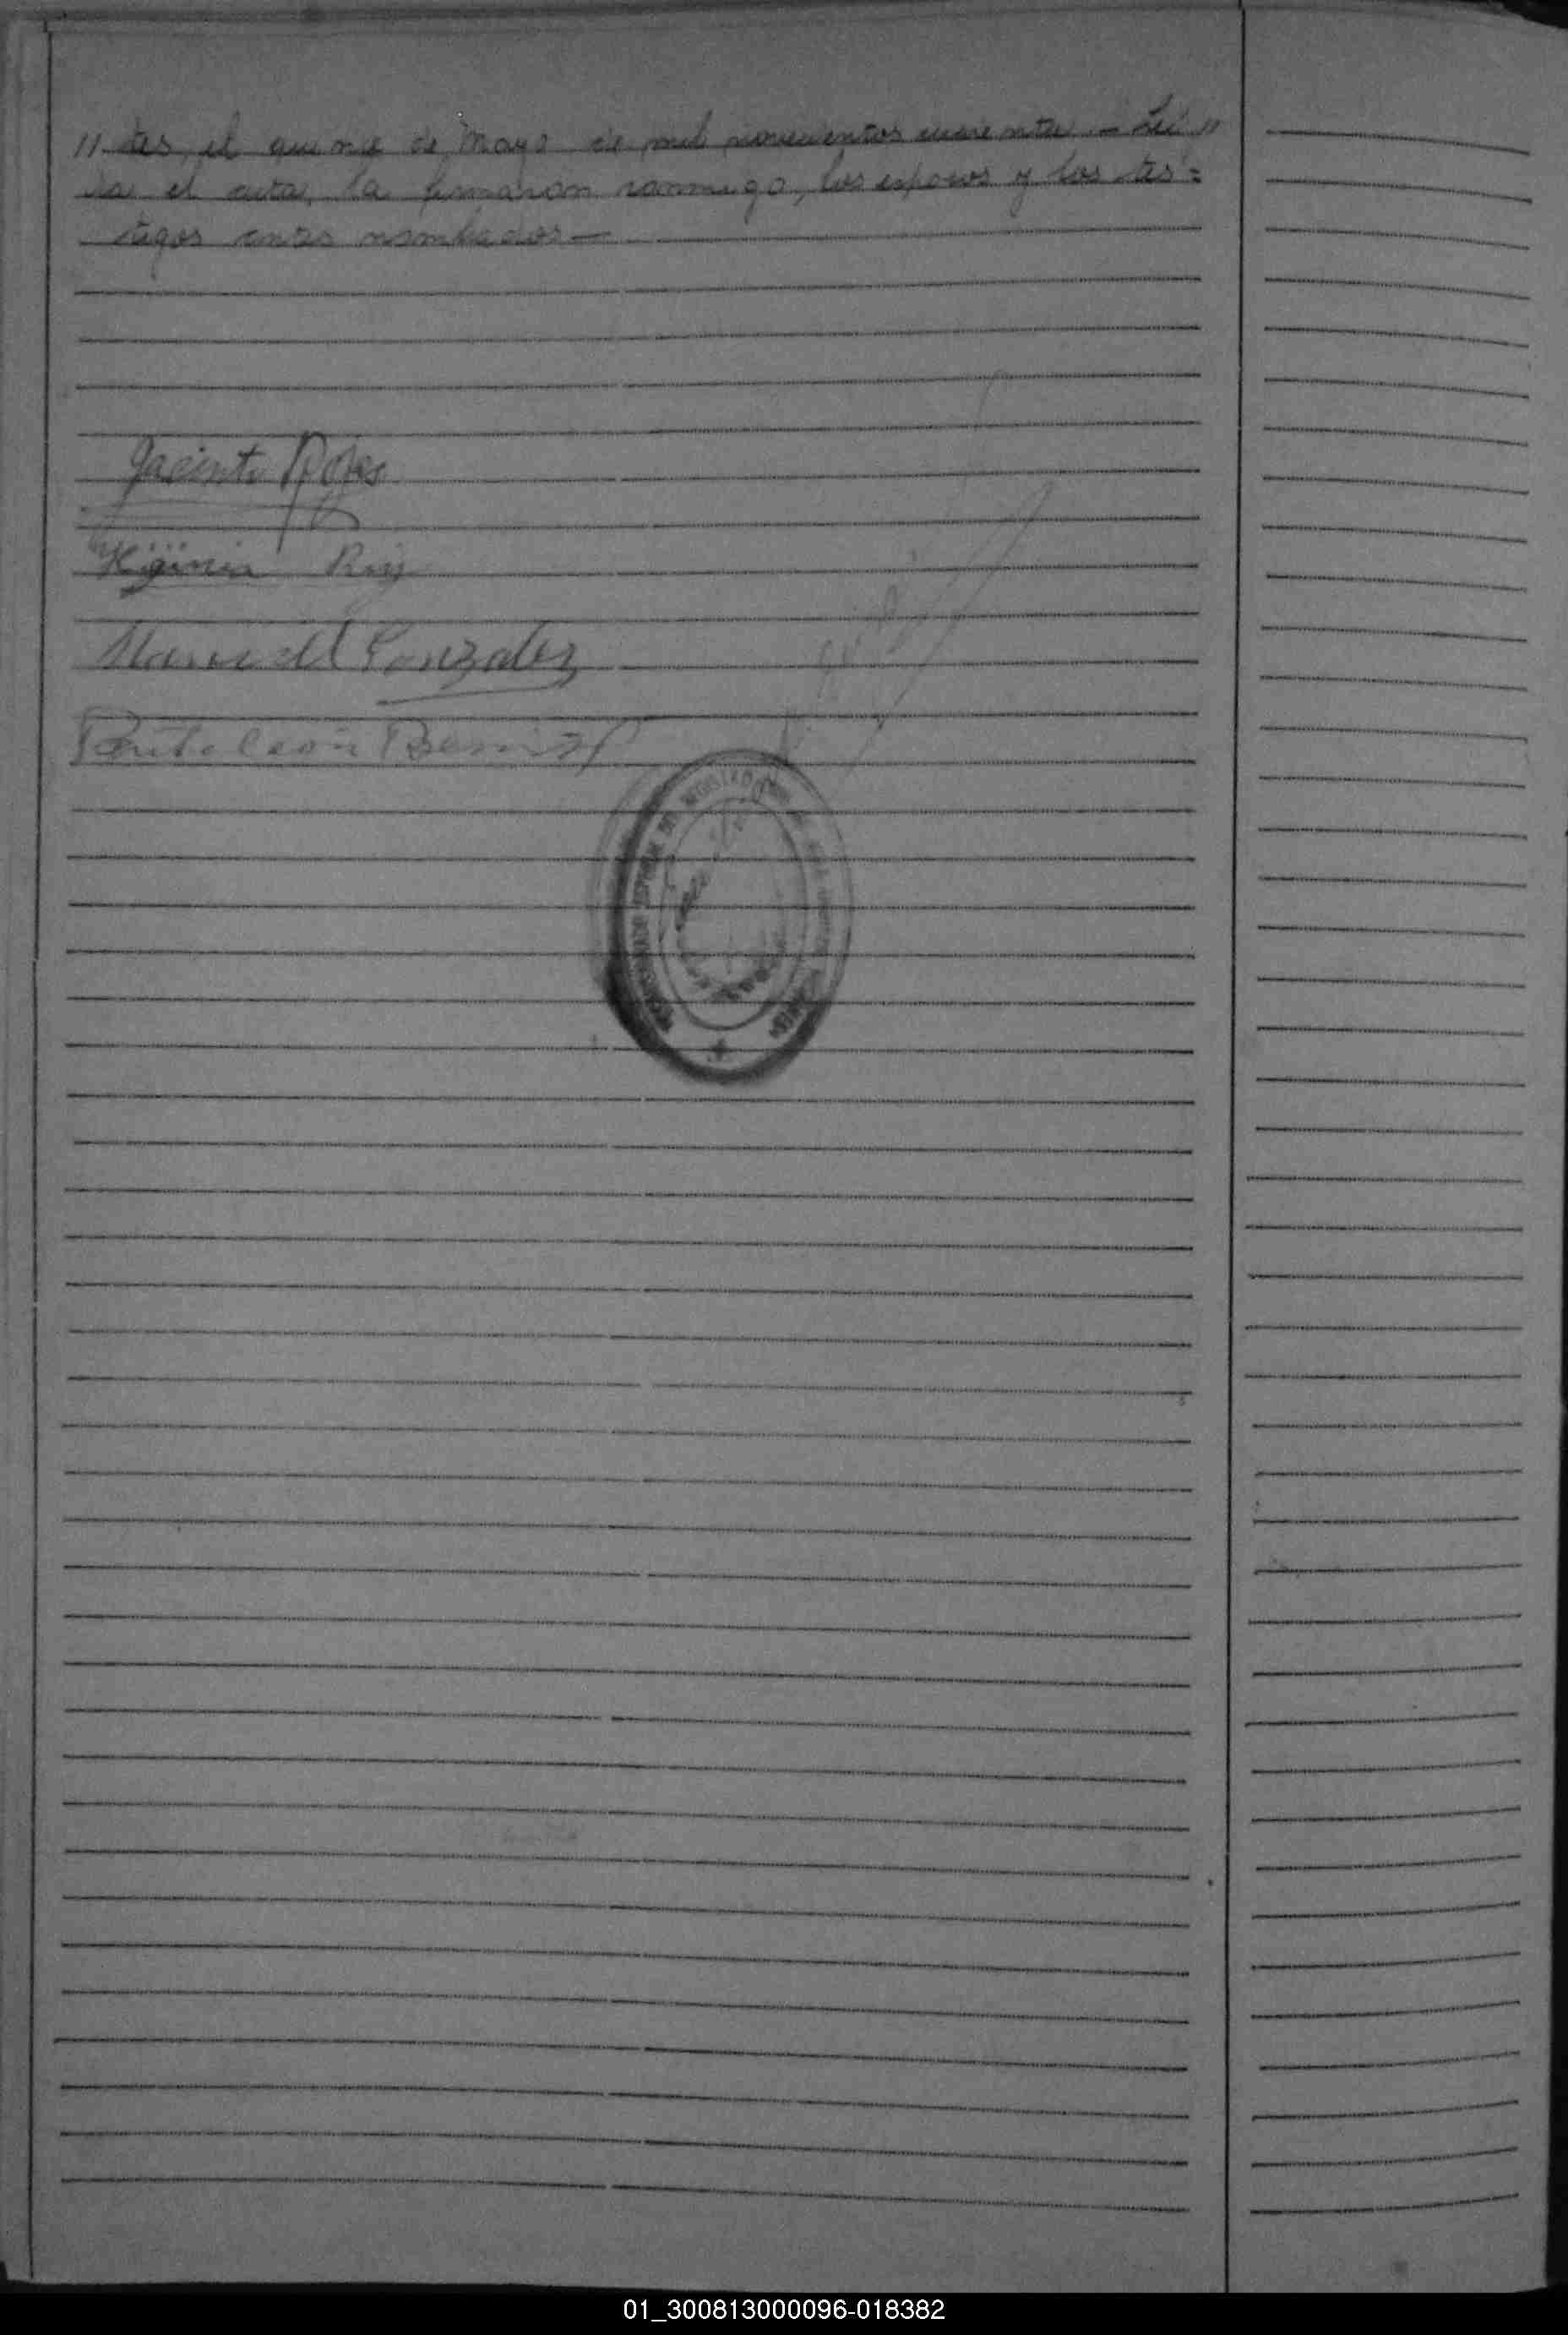 // tes, el quince de Mayo de mil novecientos cuarenta. - Leí //
da el acta, la firmaron conmigo, los esposos y los tes=
tigos antes nombrados —
Jacinto Rojas
Higinia Ruiz
Manuel Gonzalez
Pantaleón Benitez
01_300813000096-018382